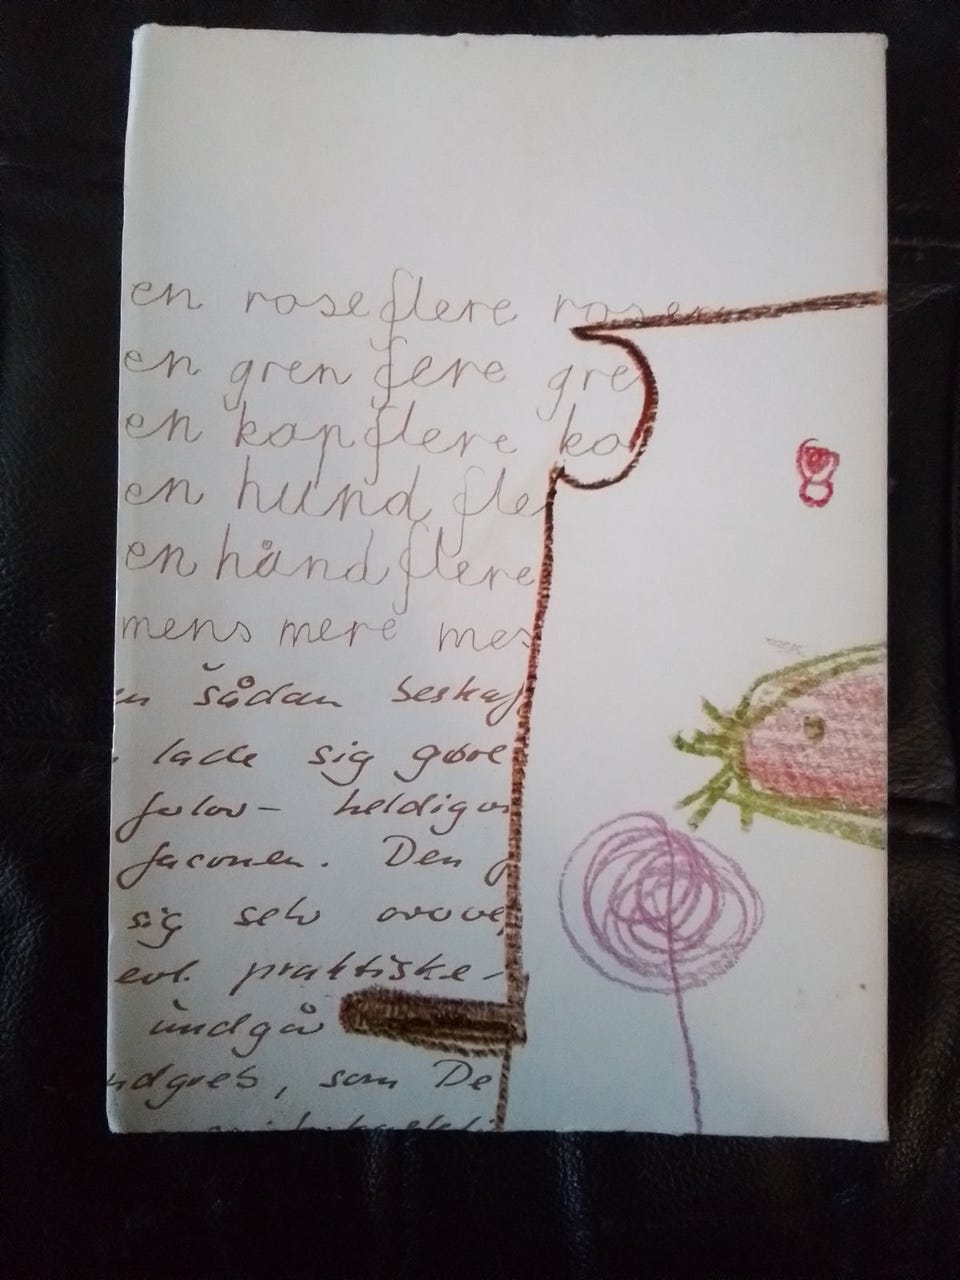 en rose flere roser
en gren fere gre
en kop flere ko
en hund fle
en hånd flere
mens mere mes
sådan beskaf
lade sig gøre
heldigvi
faconen. Den
sig selv
evt. praktiske-
undgå
ndgreb, som De